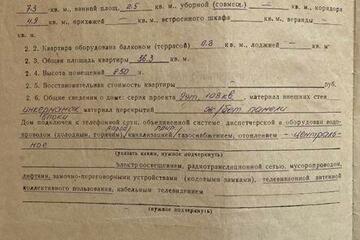 7.3 кв. м., ванной площ. 2.5 кв. м., уборной (совмест.) — кв. м., коридора
4.9 кв. м., прихожей — кв. м., встроенного шкафа — кв. м., веранды —
кв. м.
2. 2. Квартира оборудована балконом (террасой) 0.8 кв. м., лоджией — кв. м.
2. 3. Общая площадь квартиры 36.3 кв. м.
2. 4. Высота помещений 250 м.
2. 5. Восстановительная стоимость квартиры — кв. м.
2. 6. Общие сведения о доме: серия проекта 9эт, 108кв, материал внешних стен
блоки материал перекрытий ж/бет. панели
Дом подключен к телефонной сети, объединенной системе диспетчерской и оборудован водо-
проводом (холодным, горячим), канализацией, газоснабжением, отоплением — централь-
ное
(указать какии, нужное подчеркнуть)
электроосвещением, радиотрансляционной сетью, мусоропроводом,
лифтами, замочно-переговорными устройствами (кодовыми замками), телевизионной антенной
коллективного пользования, кабельным телевидением
(нужное подчеркнуть)